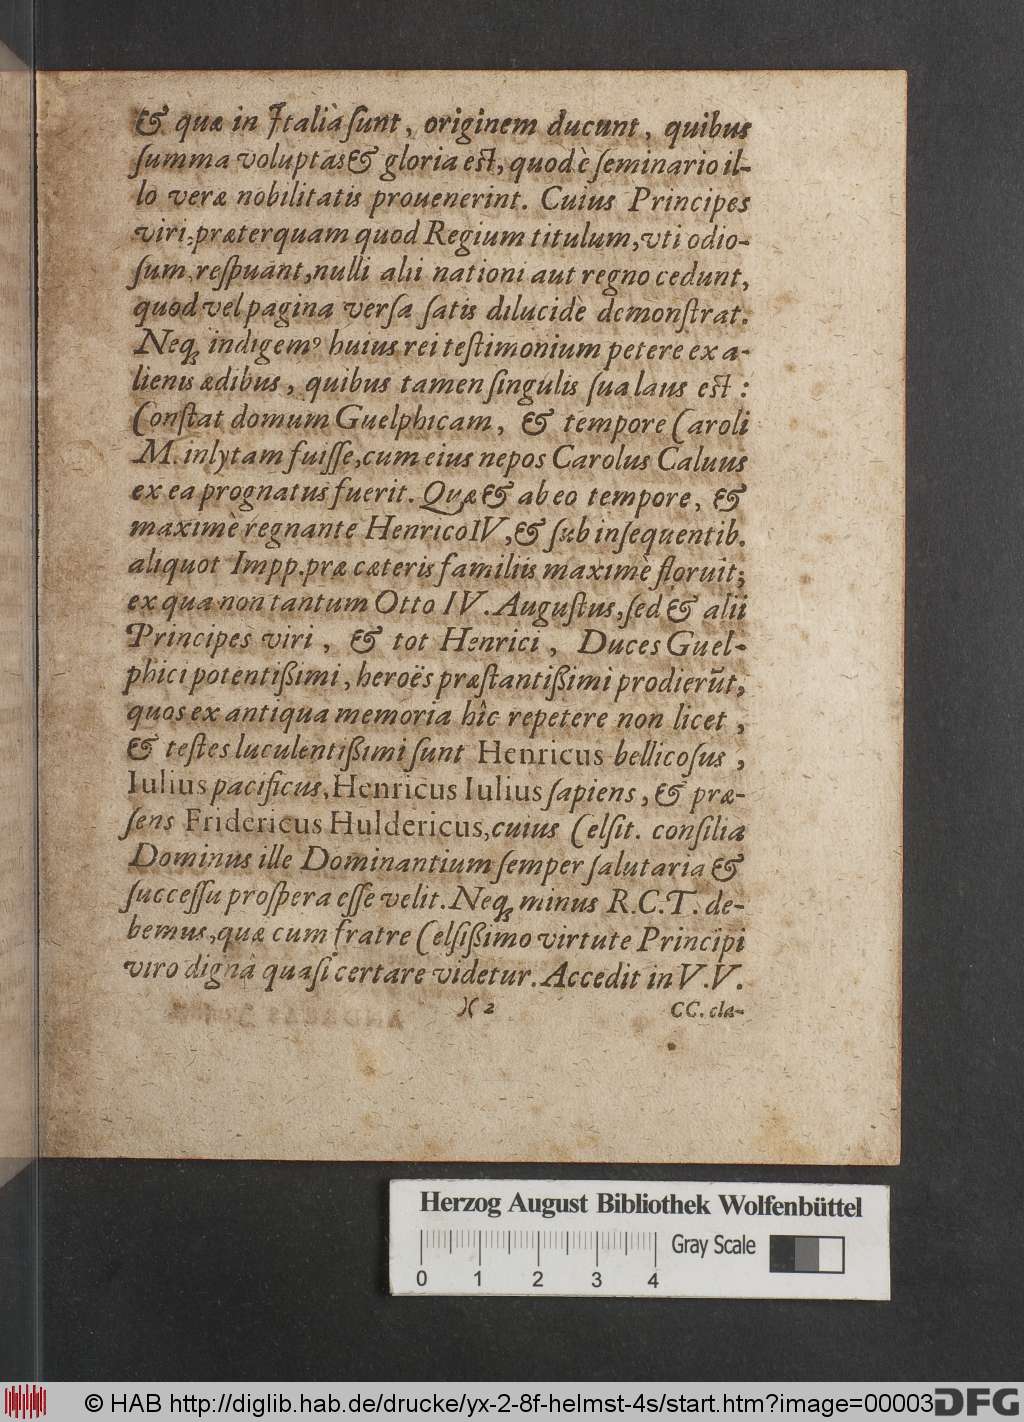 & quæ in Italiâ ſunt, originem ducunt, quibus
ſumma voluptas & gloria eſt, quod è ſeminario il-
lo veræ nobilitatis prouenerint. Cuius Principes
viri, præterquam quod Regium titulum, vti odio-
ſum, reſpuant, nulli alii nationi aut regno cedunt,
quod vel pagina verſa ſatis dilucidè demonſtrat.
Neq; indigemꝰ huius rei teſtimonium petere ex a-
lienis ædibus, quibus tamen ſingulis ſua laus eſt:
Conſtat domum Guelphicam, & tempore Caroli
M. inlytam fuiſſe, cum eius nepos Carolus Caluus
ex ea prognatus fuerit. Quæ & ab eo tempore, &
maximè regnante Henrico IV, & ſub inſequentib.
aliquot Impp. præ cæteris familiis maximè floruit;
ex qua non tantum Otto IV. Auguſtus, ſed & alii
Principes viri, & tot Henrici, Duces Guel-
phici potentißimi, heroës præſtantißimi prodierūt,
quos ex antiqua memoria hîc repetere non licet,
& teſtes luculentißimi ſunt Henricus bellicoſus,
Iulius pacificus, Henricus Iulius ſapiens, & præ-
ſens Fridericus Huldericus, cuius Celſit. conſilia
Dominus ille Dominantium ſemper ſalutaria &
ſucceſſu proſpera eſſe velit. Neq; minus R.C.T. de-
bemus, quæ cum fratre Celſißimo virtute Principi
viro dignâ quaſi certare videtur. Accedit in V.V.
)( 2 CC. cla-
Herzog August Bibliothek Wolfenbüttel
Gray Scale
0 1 2 3 4
© HAB http://diglib.hab.de/drucke/yx-2-8f-helmst-4s/start.htm?image=00003
DFG